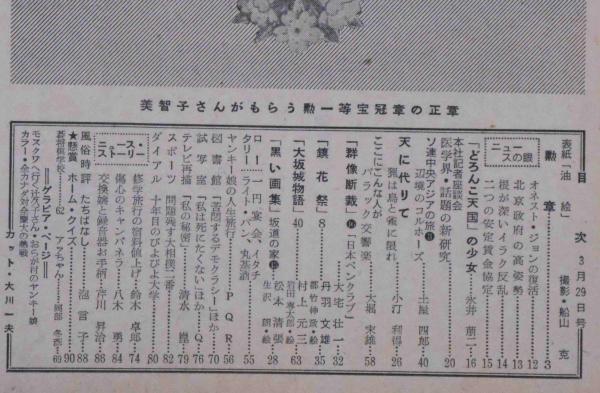 美智子さんがもらう勲一等宝冠章の正章
目次 3月29日号
表紙「油絵」 撮影・船山 克
勲章 3
ニュースの眼
オネスト・ジョンの復活 12
北京政府の高姿勢 13
根が深いイラク反乱 14
二つの安定賃金協定 15
「どろんこ天国」の少女 永井萠二 16
本社記者座談会
医学界・話題の新研究 20
ソ連中央アジアの旅
辺境のコルホーズ 土屋四郎 40
天に代りて
猟は鳥と俺に限れ 小汀利得 26
ここにこんな人が
バラク交響楽 大堀末雄 58
「群像断裁」「日本ペンクラブ」 大宅壮一 32
「鏡花祭」8 丹羽文雄 35
都竹伸政・絵
「大坂城物語」40 村上元三 63
岩田専太郎・絵
「黒い画集」坂道の家 松本清張 28
生沢 朗・絵
ロータリー 一円宴会、イタチ
ライト・バン、丸基酒 55
ヤンキー娘の人生旅行 PQR 56
図書館 「苦悶するデモクラシー」ほか 70
試写室 「私は死にたくない」ほか Q 76
テレビ再播 「私の秘密」 清水 崑 79
スポーツ 問題残す大相撲二番 82
ダイアル 十年目のびよびよ大学 80
ニュース・ストーリー
修学旅行の宿料値上げ 鈴木卓郎 74
傷心のキャンパネラ 八木 勇 84
交換嬢と録音器お手柄 芹川昇治 86
風俗時評 たちばなし 池 言子 88
★懸賞 ホーム・クイズ 90
碁将棋学校 62 アァちゃん 岡部冬彦 69
グラビア・ページ
モスクワへ行く壮次子さん・おらが村のヤンキー娘
カラー・全カナダ対全摩大の熱戦
カット・大川一夫